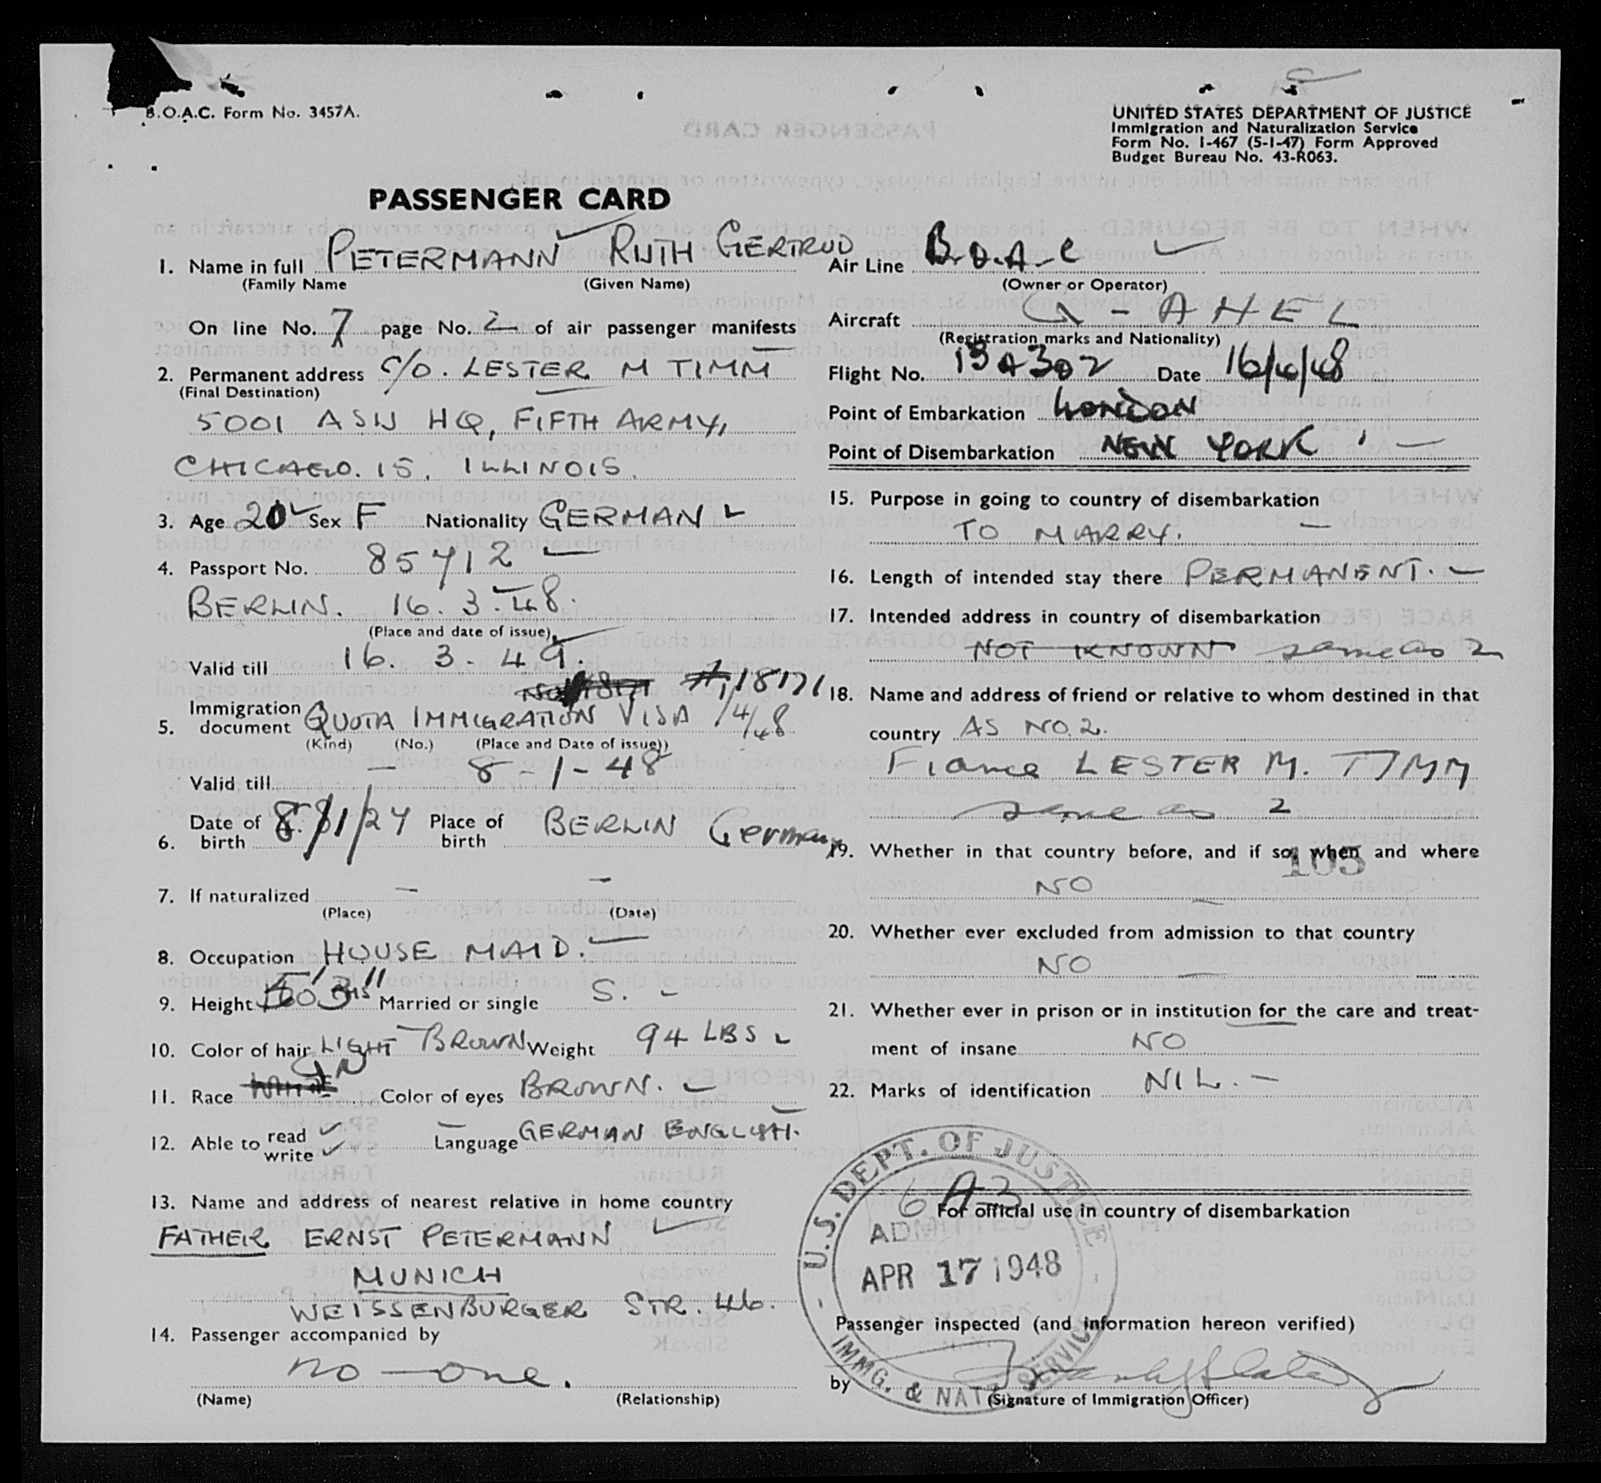 B.O.A.C. Form No. 3457A.
UNITED STATES DEPARTMENT OF JUSTICE
Immigration and Naturalization Service
Form No. I-467 (5-1-47) Form Approved
Budget Bureau No. 43-R063.
PASSENGER CARD
1. Name in full PETERMANN RUTH GERTRUD
(Family Name (Given Name)
On line No. 7 page No. 2 of air passenger manifests
2. Permanent address C/O. LESTER M TIMM
(Final Destination)
5001 ASU HQ, FIFTH ARMY,
CHICAGO. 15. ILLINOIS.
3. Age 20 Sex F Nationality GERMAN
4. Passport No. 85712
BERLIN. 16. 3. 48.
(Place and date of issue)
Valid till 16. 3. 49.
# 18171
5. Immigration document QUOTA IMMIGRATION VISA 1/4/48
(Kind) (No.) (Place and Date of issue))
Valid till 8-1-48
6. Date of birth 8/1/27 Place of birth BERLIN Germany
7. If naturalized - -
(Place) (Date)
8. Occupation HOUSE MAID.
9. Height 5' 3" Married or single S. -
10. Color of hair LIGHT BROWN Weight 94 LBS
11. Race Color of eyes BROWN.
12. Able to read write Language GERMAN ENGLISH.
13. Name and address of nearest relative in home country
FATHER ERNST PETERMANN
MUNICH
WEISSENBURGER STR. 46.
14. Passenger accompanied by
no-one.
(Name) (Relationship)
Air Line B.O.A.C
(Owner or Operator)
Aircraft G-AHEL
(Registration marks and Nationality)
Flight No. Date 16/4/48
Point of Embarkation LONDON
Point of Disembarkation NEW YORK
15. Purpose in going to country of disembarkation
TO MARRY.
16. Length of intended stay there PERMANENT.
17. Intended address in country of disembarkation
NOT KNOWN same as 2
18. Name and address of friend or relative to whom destined in that
country AS NO.2.
Fiance LESTER M. TIMM
same as 2
19. Whether in that country before, and if so, when and where
105
NO
20. Whether ever excluded from admission to that country
NO
21. Whether ever in prison or in institution for the care and treat-
ment of insane NO
22. Marks of identification NIL.
U.S. DEPT. OF JUSTICE
For official use in country of disembarkation
ADMITTED
APR 17 1948
Passenger inspected (and information hereon verified)
by
(Signature of Immigration Officer)
IMMG. & NATZ. SERVICE